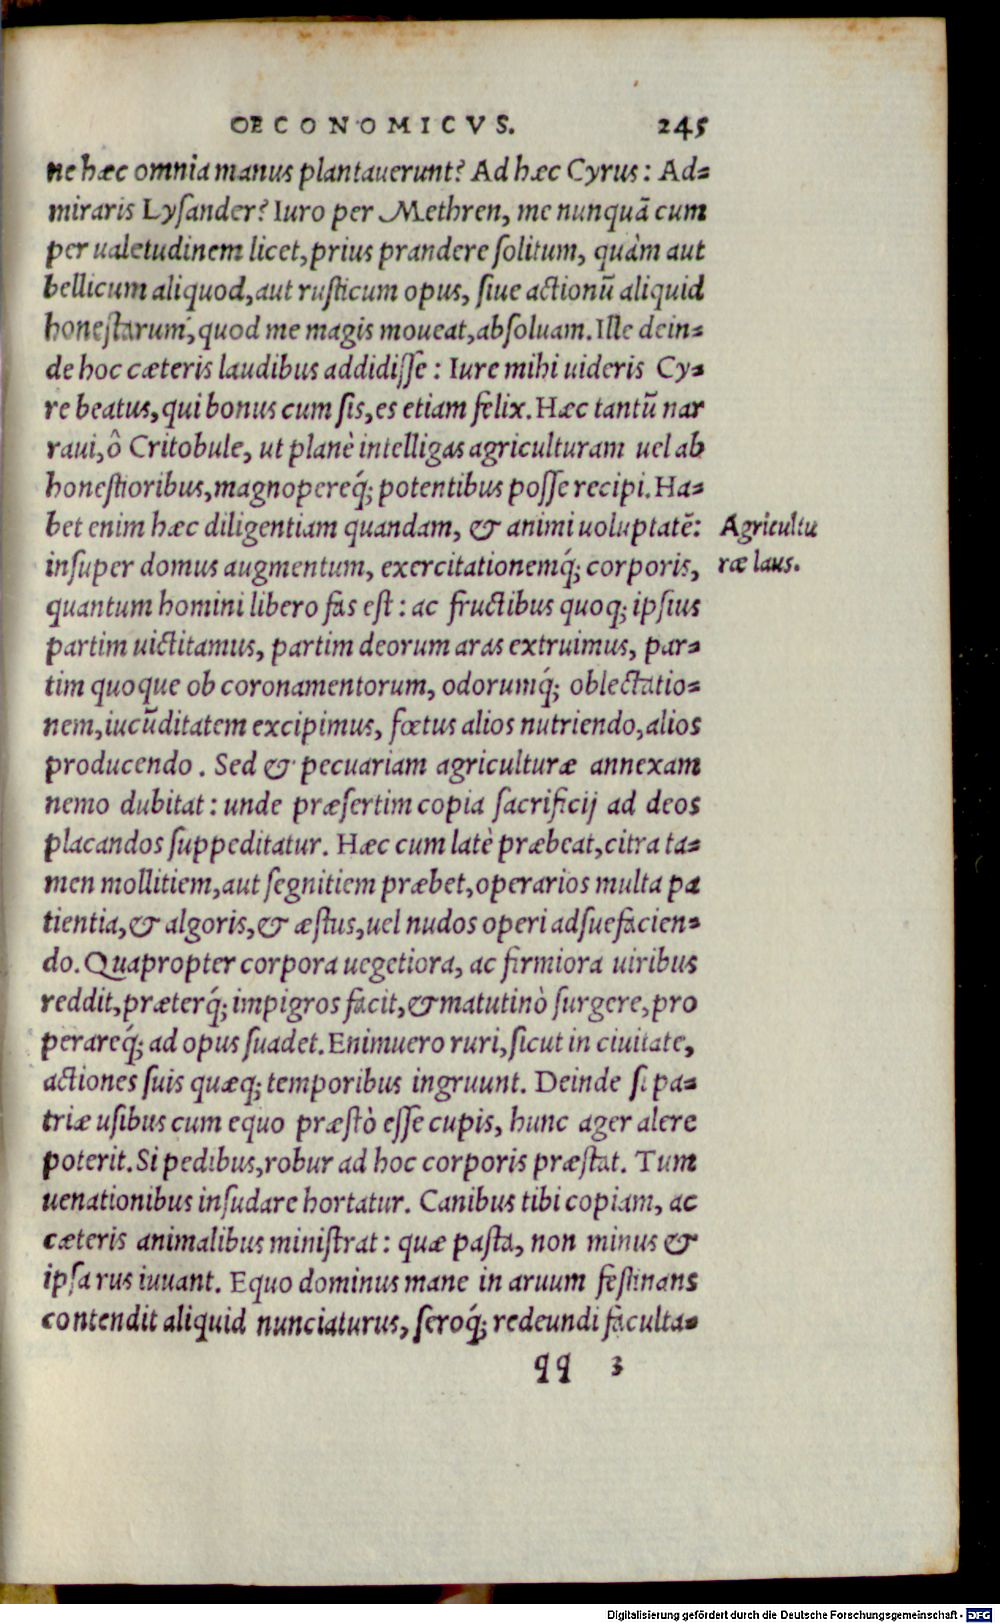 OECONOMICVS. 245
ne hæc omnia manus plantauerunt? Ad hæc Cyrus: Ad=
miraris Lysander? Iuro per Methren, me nunquā cum
per ualetudinem licet, prius prandere solitum, quàm aut
bellicum aliquod, aut rusticum opus, siue actionū aliquid
honestarum, quod me magis moueat, absoluam. Ille dein=
de hoc cæteris laudibus addidisse: Iure mihi uideris Cy=
re beatus, qui bonus cum sis, es etiam felix. Hæc tantū nar
raui, ô Critobule, ut planè intelligas agriculturam uel ab
honestioribus, magnopereq́; potentibus posse recipi. Ha=
bet enim hæc diligentiam quandam, & animi uoluptatē:
Agricultu
insuper domus augmentum, exercitationemq́; corporis,
ræ laus.
quantum homini libero fas est: ac fructibus quoq; ipsius
partim uictitamus, partim deorum aras extruimus, par=
tim quoque ob coronamentorum, odorumq́; oblectatio=
nem, iucūditatem excipimus, fœtus alios nutriendo, alios
producendo. Sed & pecuariam agriculturæ annexam
nemo dubitat: unde præsertim copia sacrificij ad deos
placandos suppeditatur. Hæc cum latè præbeat, citra ta=
men mollitiem, aut segnitiem præbet, operarios multa pa
tientia, & algoris, & æstus, uel nudos operi adsuefacien=
do. Quapropter corpora uegetiora, ac firmiora uiribus
reddit, præterq́; impigros facit, & matutinò surgere, pro
perareq́; ad opus suadet. Enimuero ruri, sicut in ciuitate,
actiones suis quæq; temporibus ingruunt. Deinde si pa=
triæ usibus cum equo præstò esse cupis, hunc ager alere
poterit. Si pedibus, robur ad hoc corporis præstat. Tum
uenationibus insudare hortatur. Canibus tibi copiam, ac
cæteris animalibus ministrat: quæ pasta, non minus &
ipsa rus iuuant. Equo dominus mane in aruum festinans
contendit aliquid nunciaturus, seroq́; redeundi faculta=
qq 3
Digitalisierung gefördert durch die Deutsche Forschungsgemeinschaft - DFG